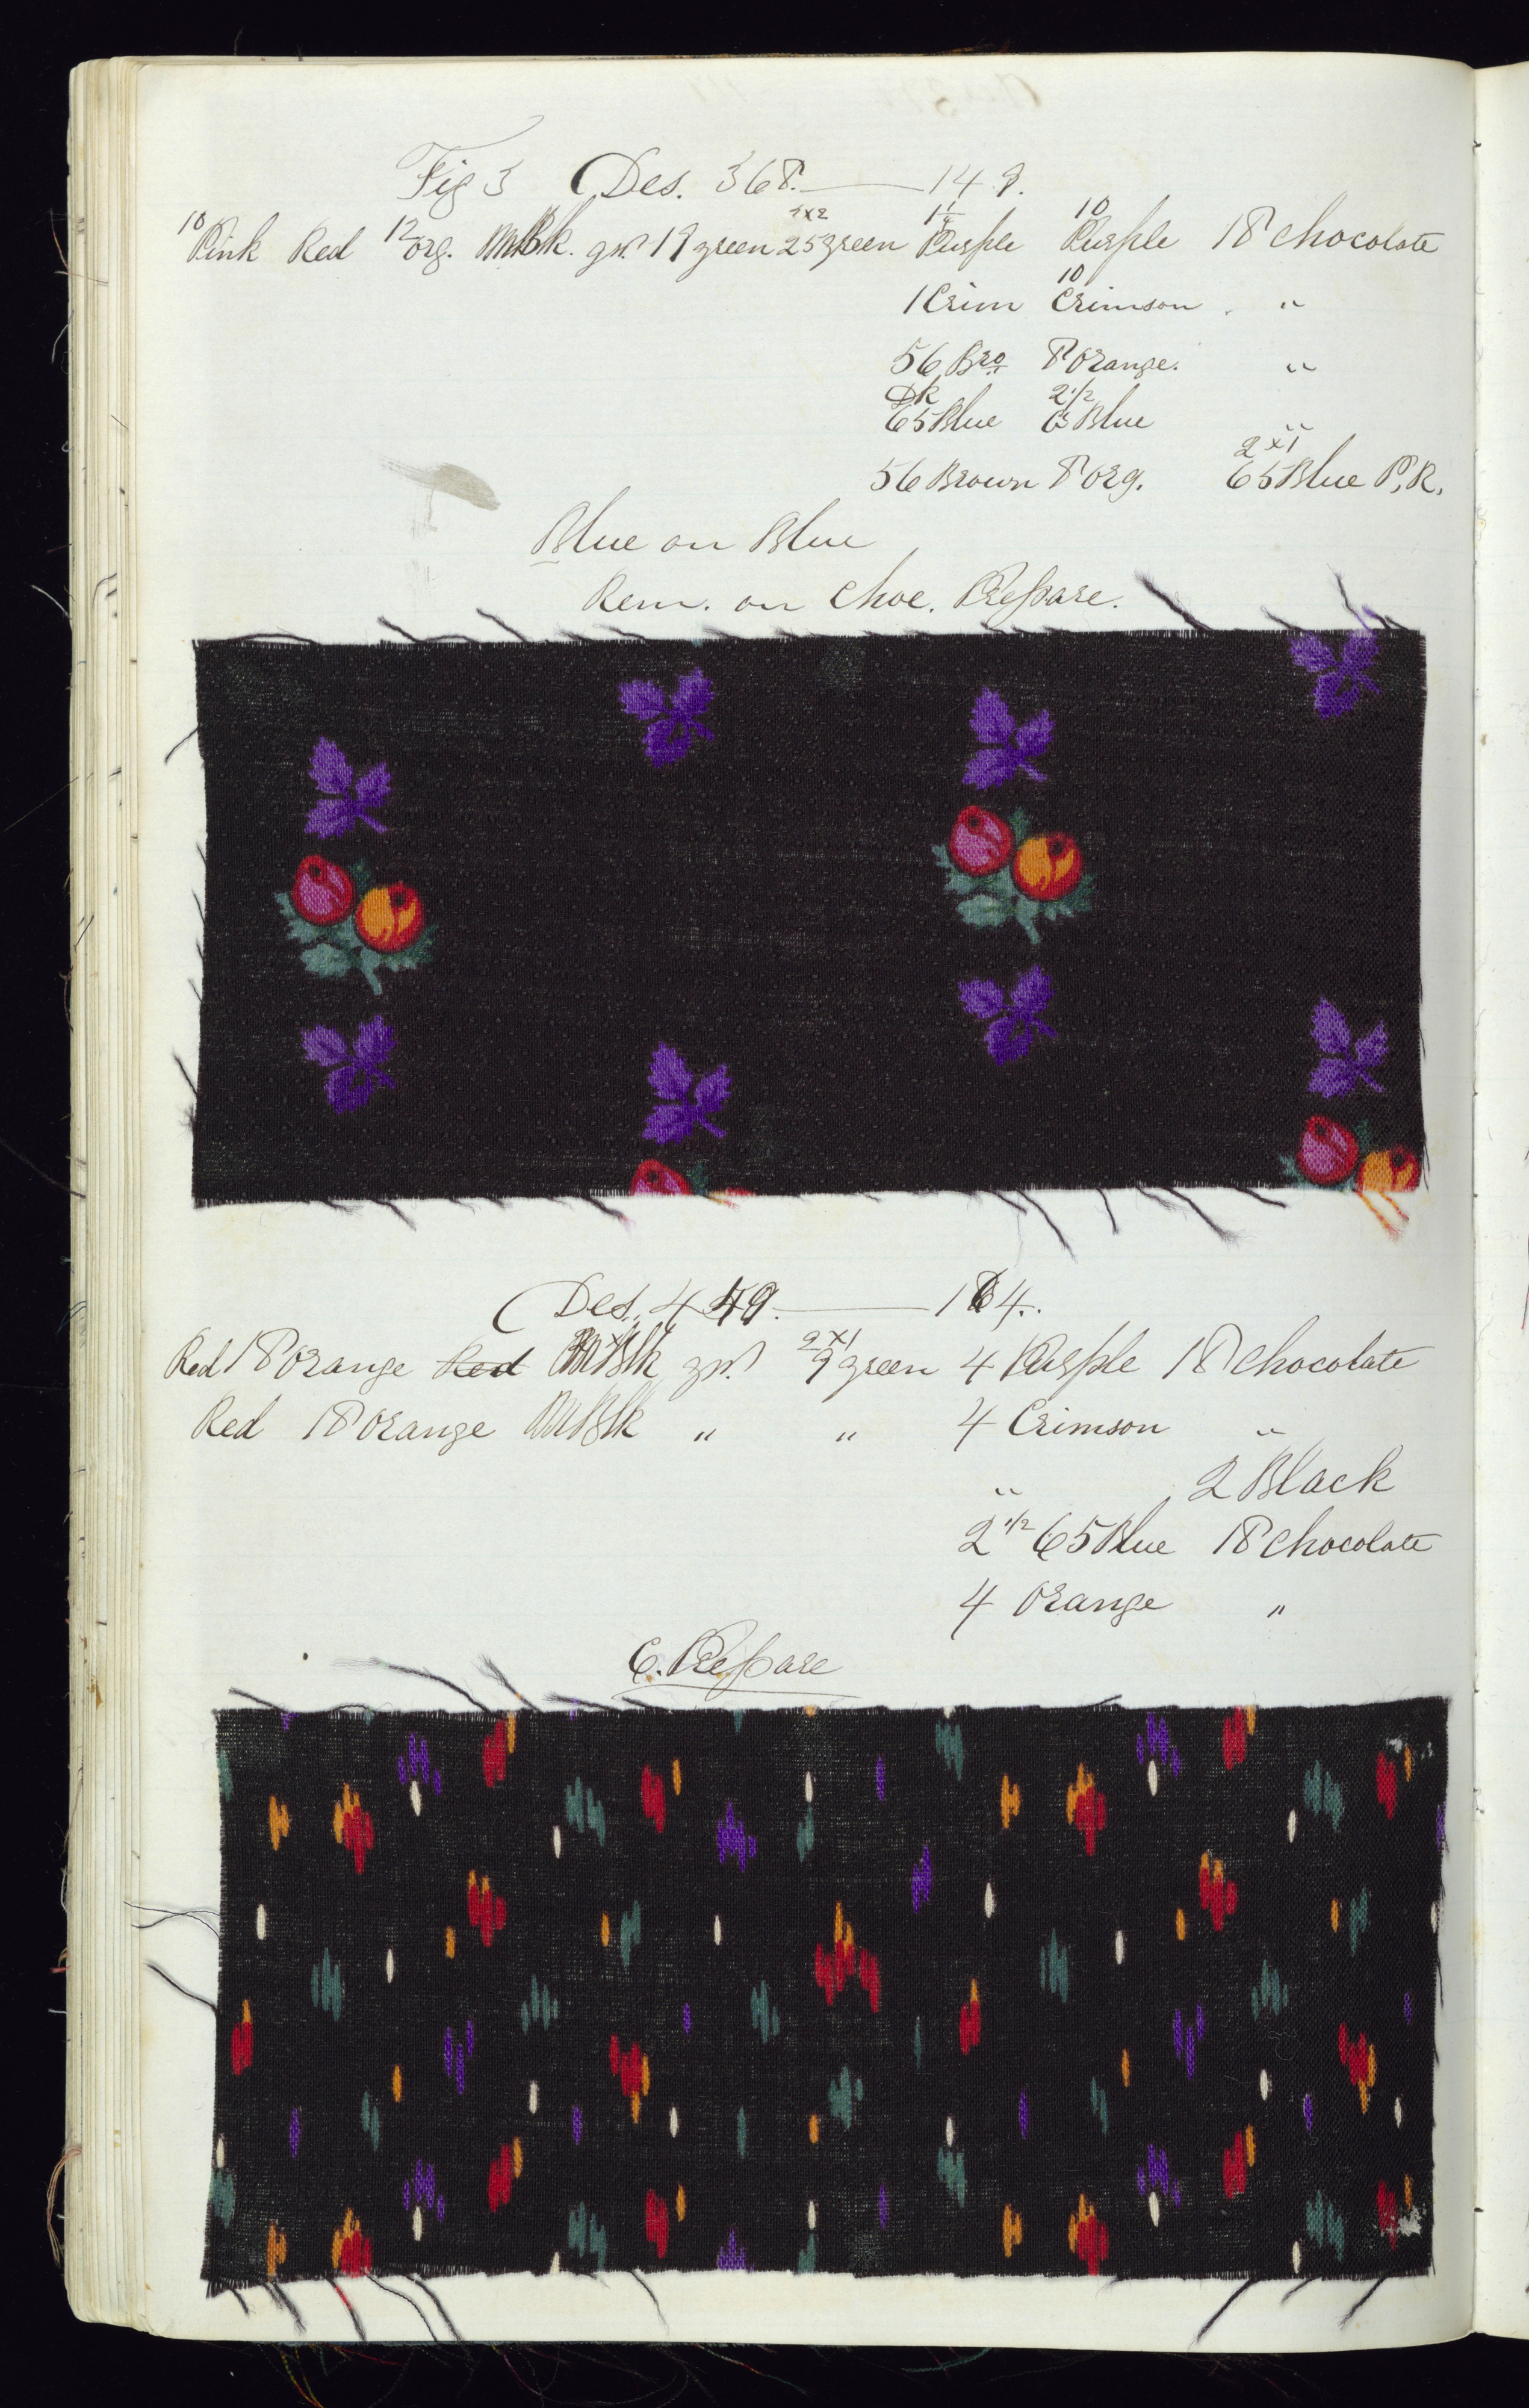 Fig 3 Des. 368. — 148.
10 Pink Red 12 org. MBk. gr. 19 green 2x2 25 green 1 1/4 Purple 10 Purple 18 chocolate
1 Crim 10 Crimson "
56 Bro 8 orange. "
Dk 65 Blue 2 1/2 65 Blue "
56 Brown 8 org. 2x1 65 Blue P.R.
Blue on Blue
Rem. on Choc. Prepare.
Des. 449. — 164.
Red 18 orange Red MBlk gr. 2x1 9 green 4 Purple 18 chocolate
Red 18 orange MBlk " " 4 Crimson "
" 2 Black
2 1/2 65 Blue 18 chocolate
4 orange "
C. Prepare